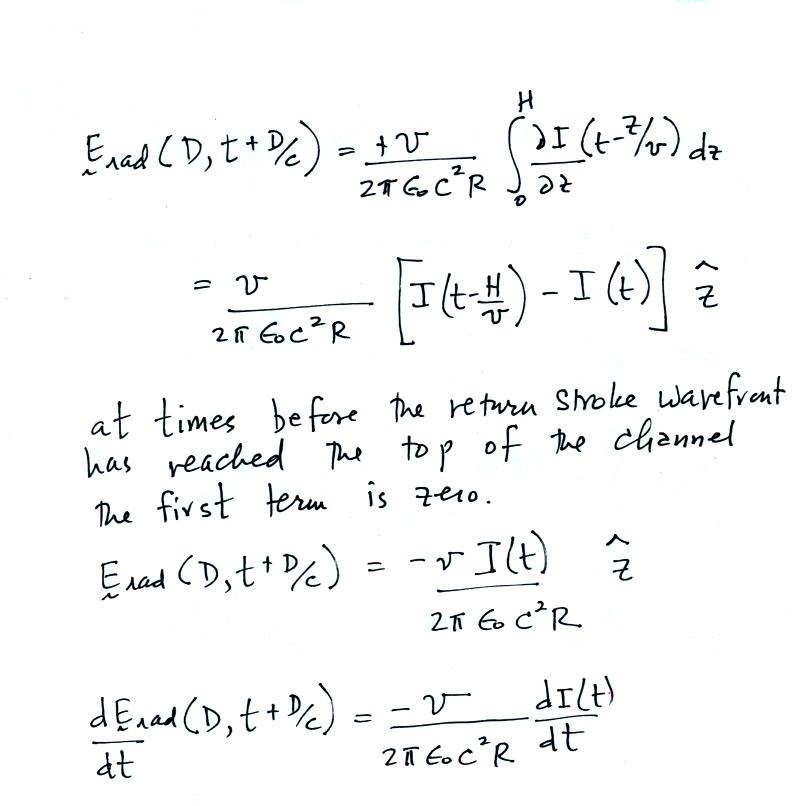 Ḛrad (D, t + D/c) = +v / 2π ε₀ c² R ∫₀ᴴ ∂I/∂z (t - z/v) dz
= v / 2π ε₀ c² R [I(t - H/v) - I(t)] ẑ
at times before the return stroke wavefront
has reached the top of the channel
the first term is zero.
Ḛrad (D, t + D/c) = -v I(t) / 2π ε₀ c² R ẑ
dḚrad/dt (D, t + D/c) = -v / 2π ε₀ c² R dI(t)/dt